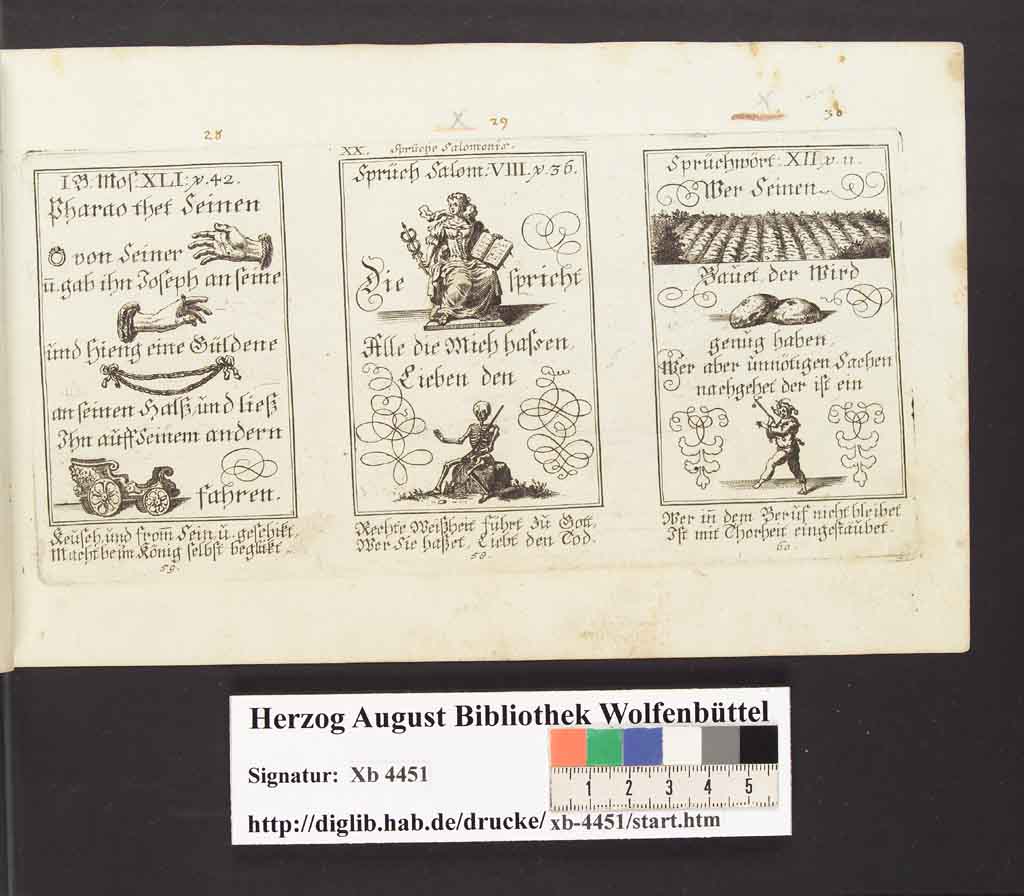 28
I B. Mos: XLI: v. 42.
Pharao thet Seinen
von Seiner
ū. gab ihn Joseph an seine
und Hieng eine Güldene
an seinen Halß und ließ
Ihn auff Seinem andern
fahren.
Keusch, und from̄ Sein, ū. geschikt,
Macht beim König selbst beglükt.
59.
X 29
XX. Sprüche Salomonis.
Sprüch Salom: VIII. v. 36.
Die spricht
Alle die Mich hassen,
Lieben den
Rechte Weißheit führt Zu Gott,
Wer Sie haßet, Liebt den Tod.
X 30
Sprüchwört: XII. v. 11.
Wer Seinen
Bauet, der Wird
genug haben,
Wer aber unnötigen Sachen
nachgehet der ist ein
Wer in̄ dem Beruf nicht bleibet
Ist mit Thorheit eingestaubet.
60.
Herzog August Bibliothek Wolfenbüttel
Signatur: Xb 4451
1 2 3 4 5
http://diglib.hab.de/drucke/xb-4451/start.htm